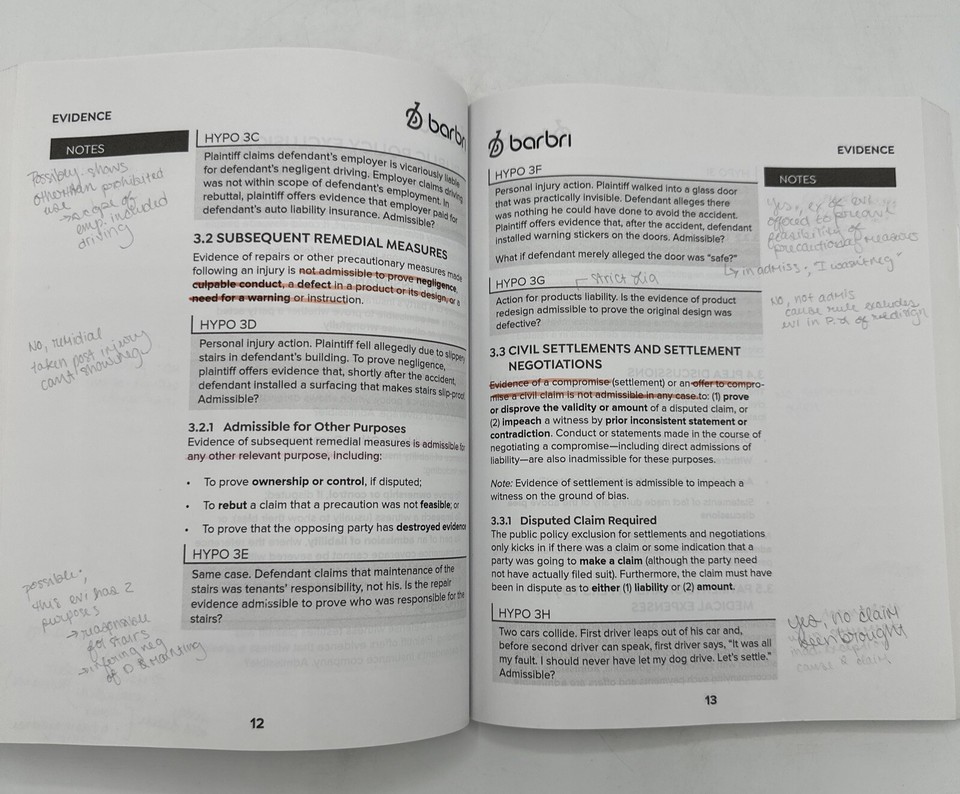 EVIDENCE
barbri
NOTES
Possibly. shows
other than prohibited
use
→ scope of
emp. included
driving
HYPO 3C
Plaintiff claims defendant's employer is vicariously liable
for defendant's negligent driving. Employer claims driving
was not within scope of defendant's employment. In
rebuttal, plaintiff offers evidence that employer paid for
defendant's auto liability insurance. Admissible?
3.2 SUBSEQUENT REMEDIAL MEASURES
Evidence of repairs or other precautionary measures made
following an injury is not admissible to prove negligence,
culpable conduct, a defect in a product or its design, or a
need for a warning or instruction.
No, remidial
taken post injury
can't show neg
HYPO 3D
Personal injury action. Plaintiff fell allegedly due to slippery
stairs in defendant's building. To prove negligence,
plaintiff offers evidence that, shortly after the accident,
defendant installed a surfacing that makes stairs slip-proof.
Admissible?
3.2.1 Admissible for Other Purposes
Evidence of subsequent remedial measures is admissible for
any other relevant purpose, including:
• To prove ownership or control, if disputed;
• To rebut a claim that a precaution was not feasible; or
• To prove that the opposing party has destroyed evidence
HYPO 3E
Same case. Defendant claims that maintenance of the
stairs was tenants' responsibility, not his. Is the repair
evidence admissible to prove who was responsible for the
stairs?
possible,
this evi has 2
purposes
→ responsible
for stairs
→ infering neg
of D
12
barbri
EVIDENCE
HYPO 3F
Personal injury action. Plaintiff walked into a glass door
that was practically invisible. Defendant alleges there
was nothing he could have done to avoid the accident.
Plaintiff offers evidence that, after the accident, defendant
installed warning stickers on the doors. Admissible?
What if defendant merely alleged the door was "safe?"
NOTES
offered to prevent
feasibility of
precautionary measures
↳ inadmiss., "I wasn't neg"
HYPO 3G
strict lia
Action for products liability. Is the evidence of product
redesign admissible to prove the original design was
defective?
No, not admis
cause rule excludes
evi in P.L of redisign
3.3 CIVIL SETTLEMENTS AND SETTLEMENT
NEGOTIATIONS
Evidence of a compromise (settlement) or an offer to compro-
mise a civil claim is not admissible in any case to: (1) prove
or disprove the validity or amount of a disputed claim, or
(2) impeach a witness by prior inconsistent statement or
contradiction. Conduct or statements made in the course of
negotiating a compromise—including direct admissions of
liability—are also inadmissible for these purposes.
Note: Evidence of settlement is admissible to impeach a
witness on the ground of bias.
3.3.1 Disputed Claim Required
The public policy exclusion for settlements and negotiations
only kicks in if there was a claim or some indication that a
party was going to make a claim (although the party need
not have actually filed suit). Furthermore, the claim must have
been in dispute as to either (1) liability or (2) amount.
HYPO 3H
Two cars collide. First driver leaps out of his car and,
before second driver can speak, first driver says, "It was all
my fault. I should never have let my dog drive. Let's settle."
Admissible?
yes, no claim
been brought
13